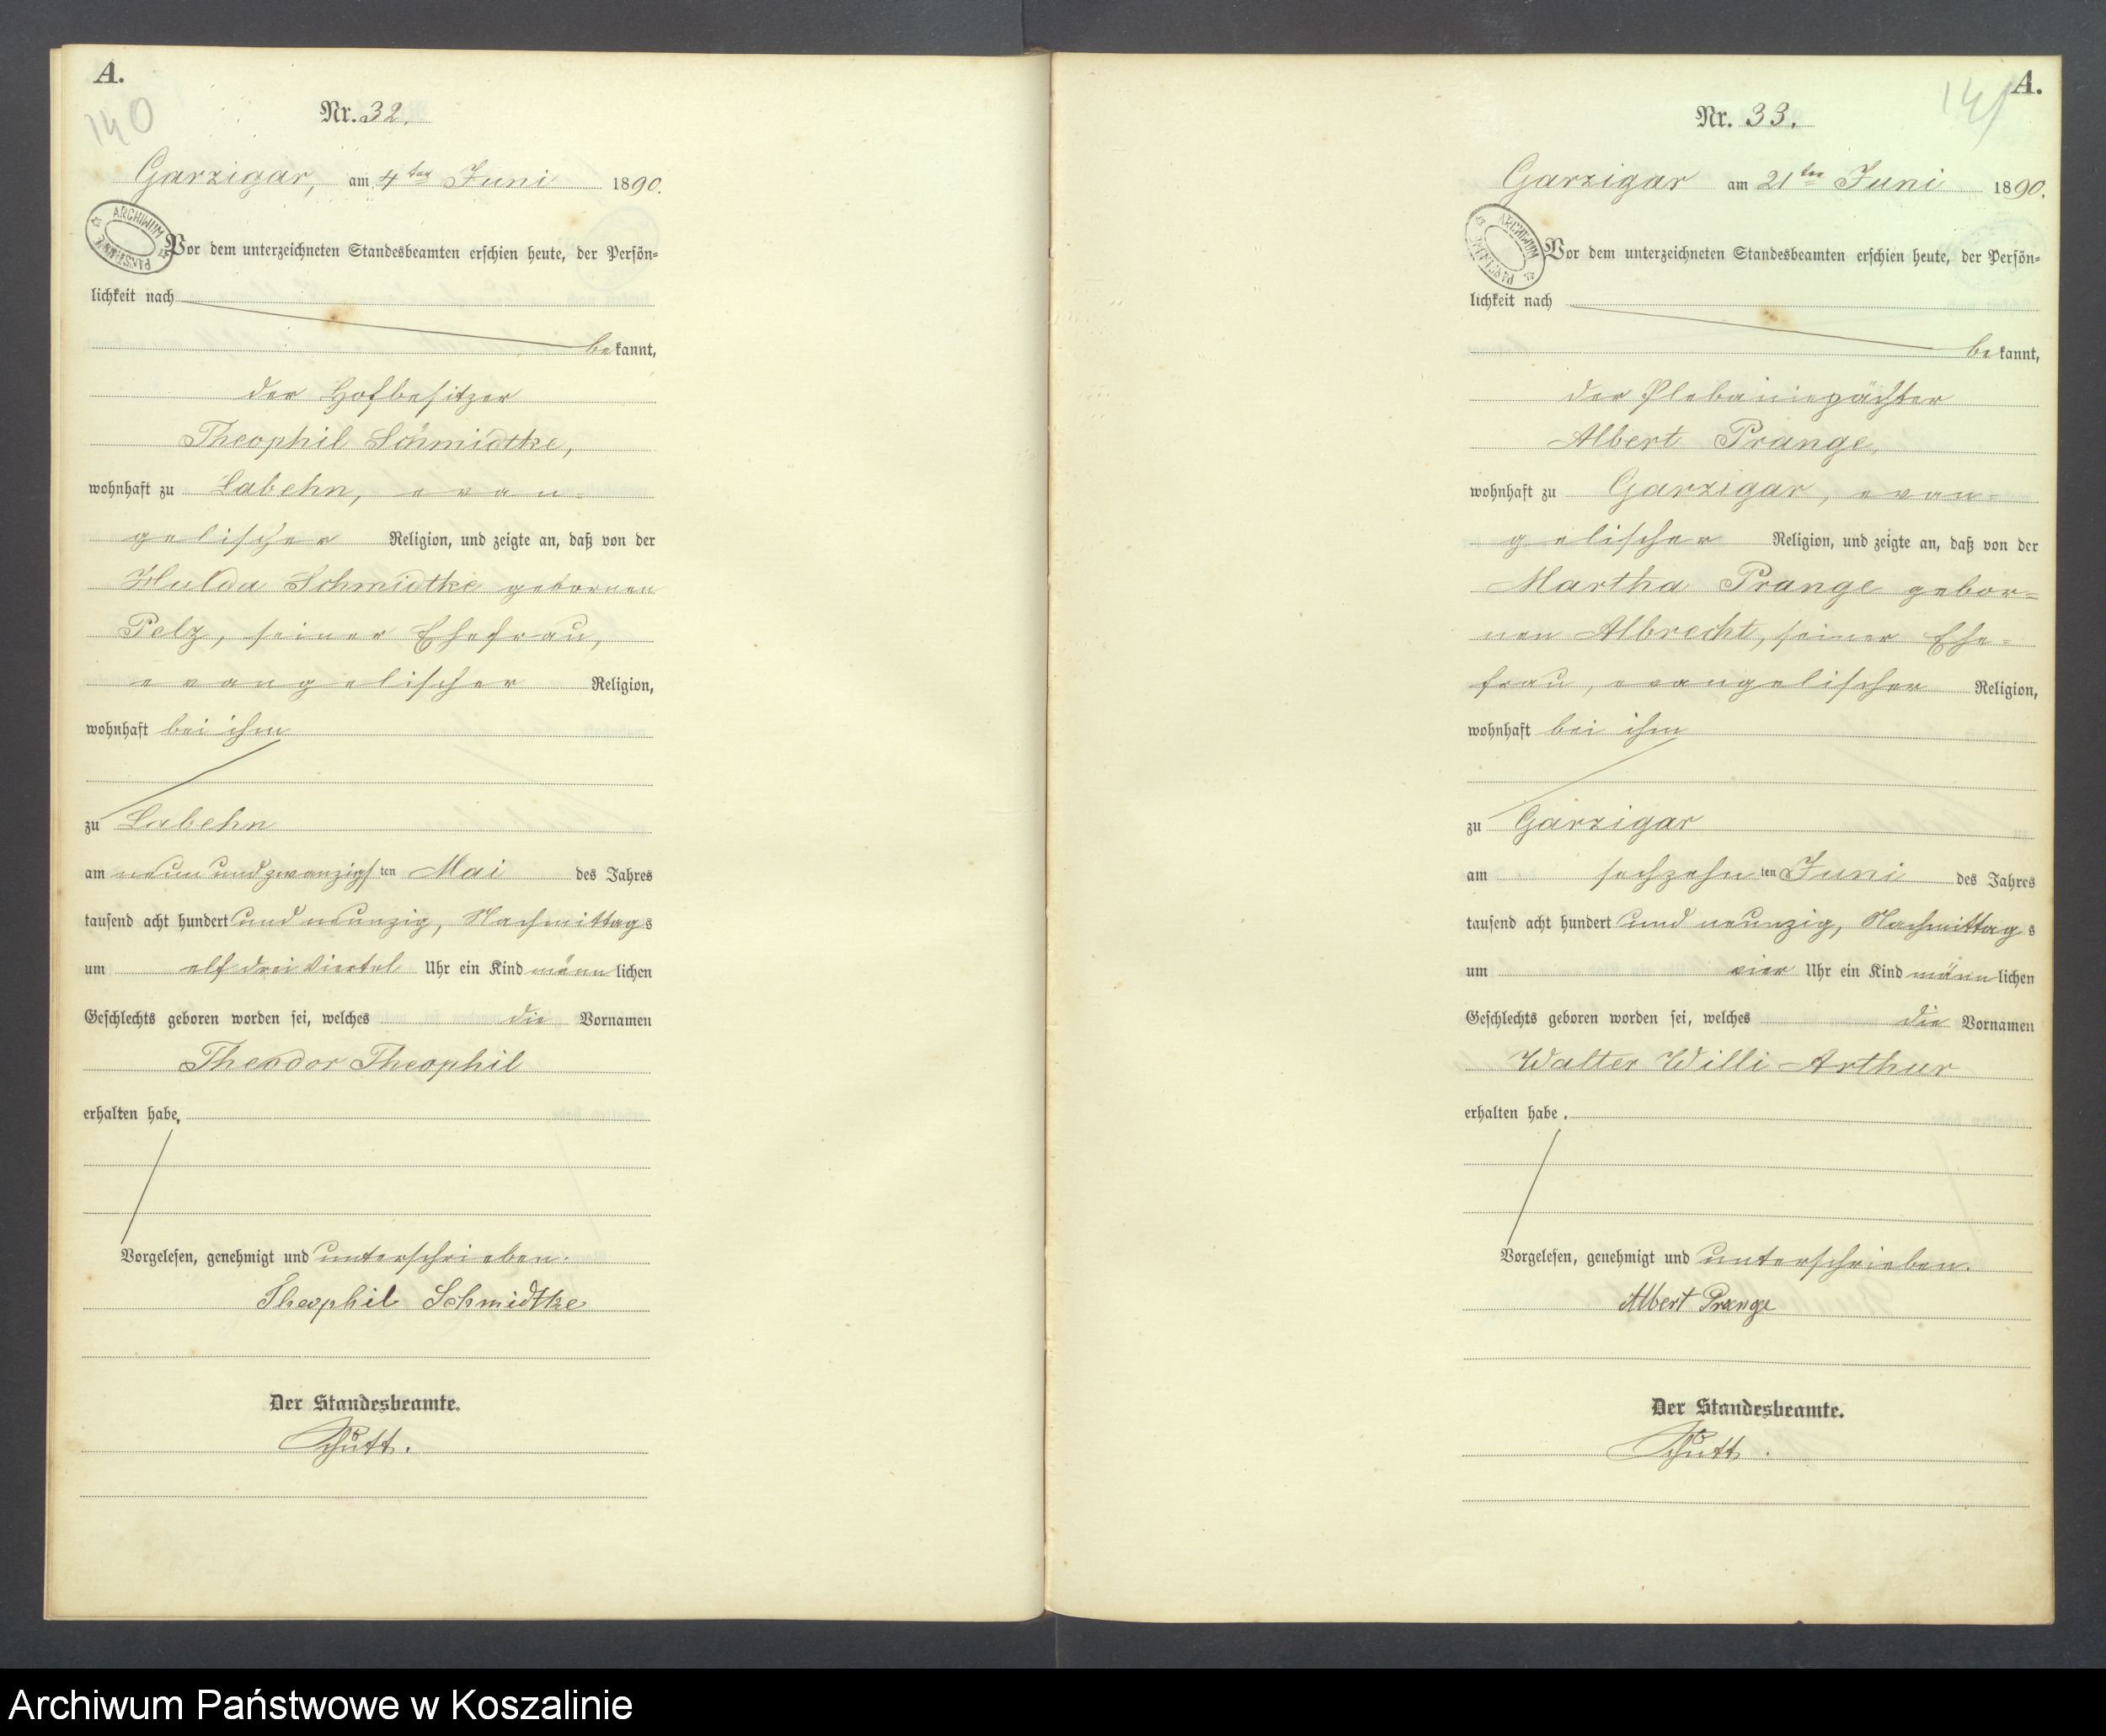 A.
140
Nr. 32.
Garzigar, am 4ten Juni 1890.
ARCHIWUM PAŃSTWOWE
Vor dem unterzeichneten Standesbeamten erschien heute, der Persön-
lichkeit nach
bekannt,
der Hofbesitzer
Theophil Schmidtke,
wohnhaft zu Labehn, evan-
gelischer Religion, und zeigte an, daß von der
Hulda Schmidtke gebornen
Pelz, seiner Ehefrau,
evangelischer Religion,
wohnhaft bei ihm
zu Labehn
am neun und zwanzigsten Mai des Jahres
tausend acht hundert und neunzig, Nachmittags
um elf drei Viertel Uhr ein Kind männlichen
Geschlechts geboren worden sei, welches die Vornamen
Theodor Theophil
erhalten habe.
Vorgelesen, genehmigt und unterschrieben.
Theophil Schmidtke
Der Standesbeamte.
Schütt.
A.
141
Nr. 33.
Garzigar am 21ten Juni 1890.
ARCHIWUM PAŃSTWOWE
Vor dem unterzeichneten Standesbeamten erschien heute, der Persön-
lichkeit nach
bekannt,
der Plebaniepächter
Albert Prange,
wohnhaft zu Garzigar, evan-
gelischer Religion, und zeigte an, daß von der
Martha Prange gebor-
nen Albrecht, seiner Ehe-
frau, evangelischer Religion,
wohnhaft bei ihm
zu Garzigar
am sechzehnten Juni des Jahres
tausend acht hundert und neunzig, Nachmittags
um vier Uhr ein Kind männlichen
Geschlechts geboren worden sei, welches die Vornamen
Walter Willi Arthur
erhalten habe.
Vorgelesen, genehmigt und unterschrieben.
Albert Prange
Der Standesbeamte.
Schütt.
Archiwum Państwowe w Koszalinie